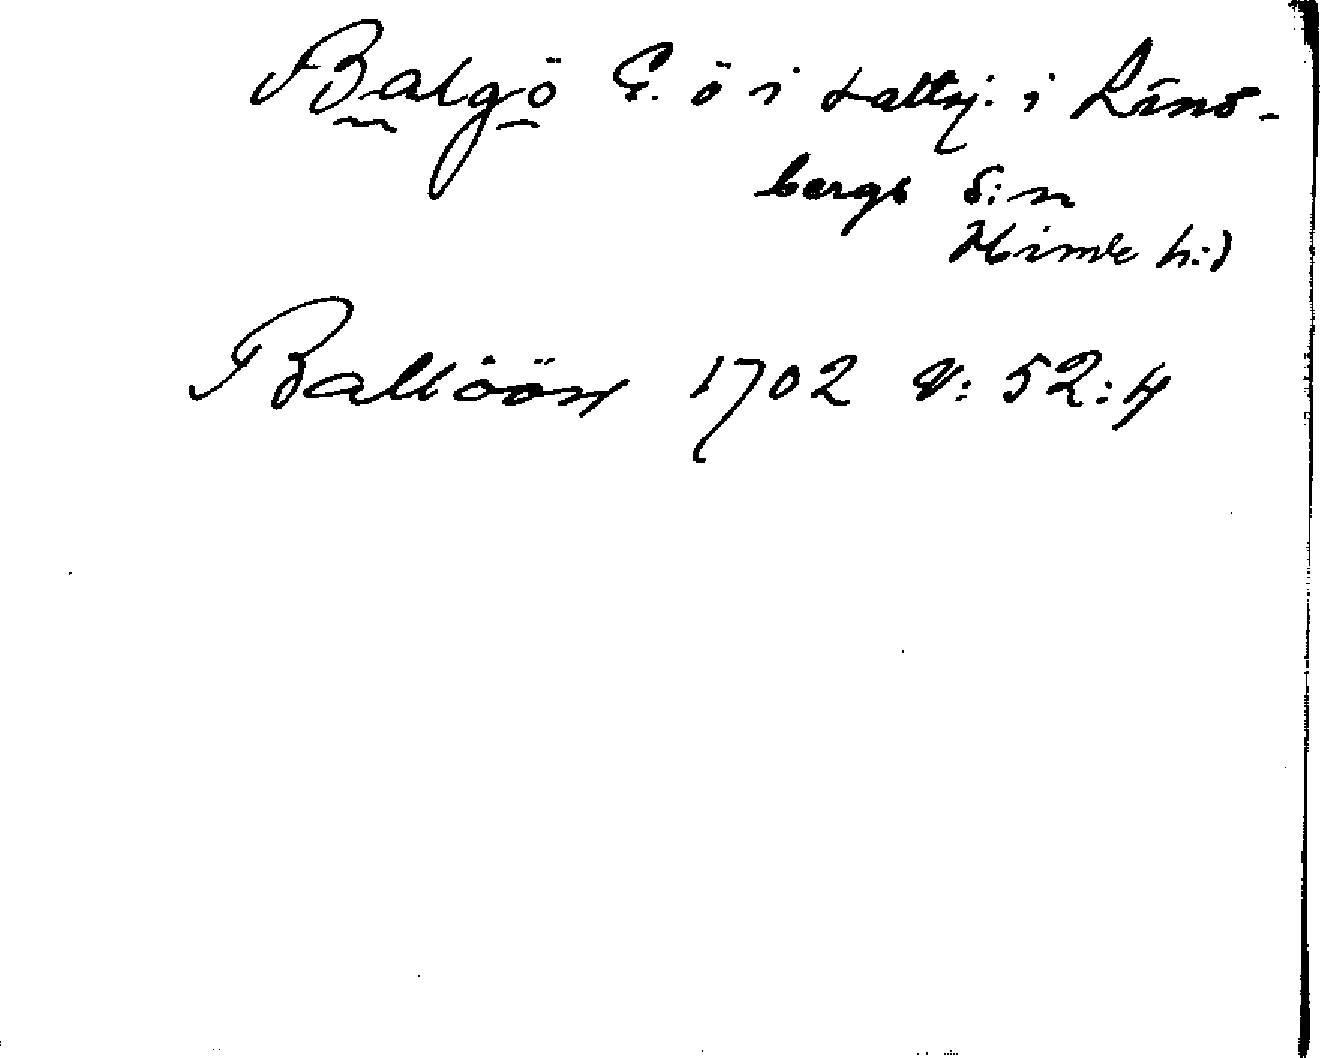 Balgö f. ö i Kattg. i Lind-
bergs s:n
Himle h:d
Balloön 1702 V: 52:4